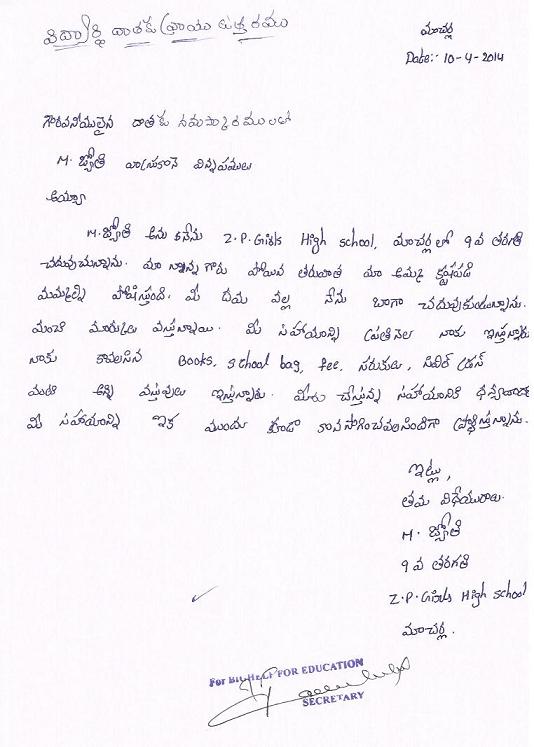 విద్యార్థి దాతకు వ్రాయు ఉత్తరము
మాచర్ల
Date:- 10-4-2014
గౌరవనీయులైన దాతకు నమస్కారములతో
M. జ్యోతి వ్రాసుకొనే విన్నపములు
అయ్యా
M. జ్యోతి అను 6నేను Z.P. Girls High school, మాచర్లలో 9 వ తరగతి
చదువుచున్నాను. మా నాన్న గారు పోయిన తరువాత మా అమ్మ కష్టపడి
మమ్మల్ని పోషిస్తుంది. మీ దయ వల్ల నేను బాగా చదువుకుంటున్నాను.
మంచి మార్కులు వస్తున్నాయి. మీ సహాయాన్ని ప్రతినెల నాకు ఇస్తున్నారు
నాకు కావలసిన Books, school bag, fee, సరుకులు, సివిల్ డ్రస్
వంటి అన్ని వస్తువులు ఇస్తున్నారు. మీరు చేస్తున్న సహాయానికి ధన్యవాదాలు
మీ సహాయాన్ని ఇక ముందు కూడా కొనసాగించవలసిందిగా ప్రార్థిస్తున్నాను.
ఇట్లు,
తమ విధేయురాలు
M. జ్యోతి
9 వ తరగతి
Z.P. Girls High school
మాచర్ల.
For BIG HELP FOR EDUCATION
SECRETARY